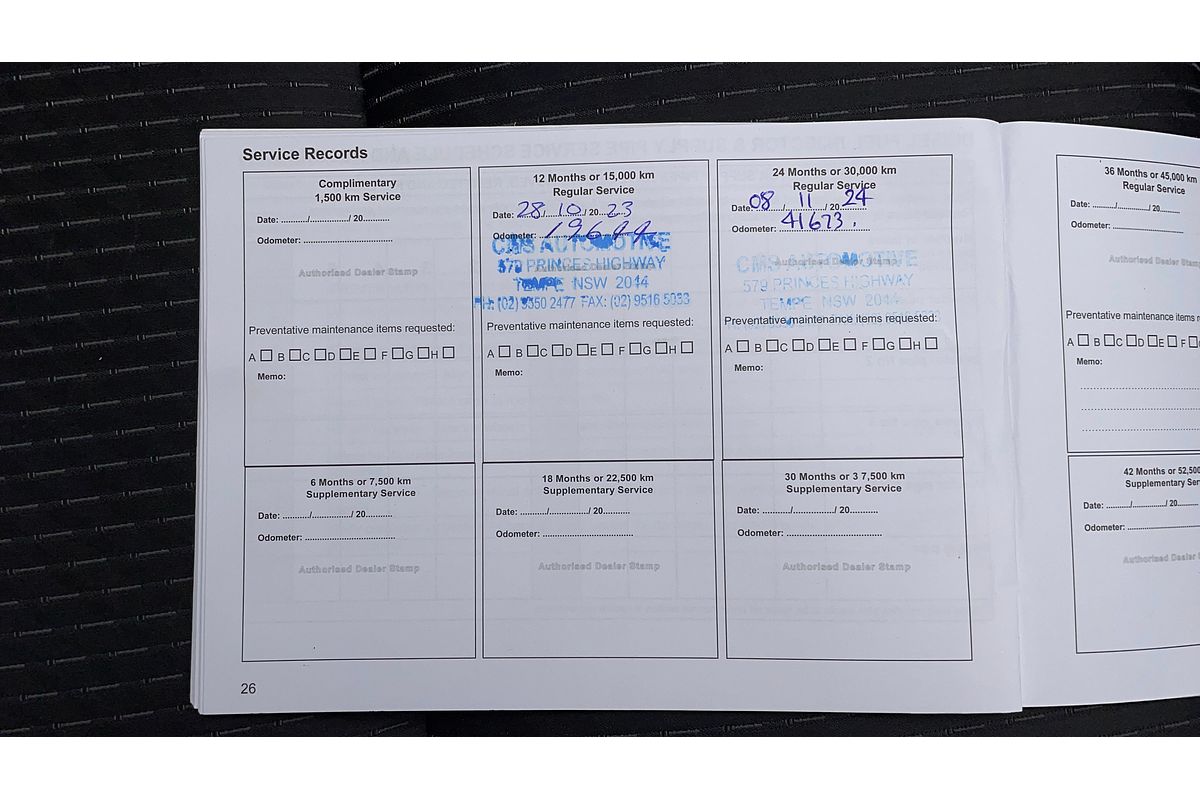 Service Records
Complimentary
1,500 km Service
Date: ........../................/ 20..........
Odometer: ...................................
Authorised Dealer Stamp
Preventative maintenance items requested:
A □ B □ C □ D □ E □ F □ G □ H □
Memo:
12 Months or 15,000 km
Regular Service
Date: 28/10/2023
Odometer:
CMS AUTOMOTIVE
579 PRINCES HIGHWAY
TEMPE NSW 2044
PH: (02) 9350 2477 FAX: (02) 9516 5033
Preventative maintenance items requested:
A □ B □ C □ D □ E □ F □ G □ H □
Memo:
24 Months or 30,000 km
Regular Service
Date: 08/11/2024
Odometer: 41673.
Authorised Dealer Stamp
CMS AUTOMOTIVE
579 PRINCES HIGHWAY
TEMPE NSW 2044
Preventative maintenance items requested:
A □ B □ C □ D □ E □ F □ G □ H □
Memo:
36 Months or 45,000 km
Regular Service
Date: ........../................/ 20..........
Odometer: ...................................
Authorised Dealer Stamp
Preventative maintenance items
A □ B □ C □ D □ E □ F □ G
Memo:
6 Months or 7,500 km
Supplementary Service
Date: ........../................/ 20..........
Odometer: ...................................
Authorised Dealer Stamp
18 Months or 22,500 km
Supplementary Service
Date: ........../................/ 20..........
Odometer: ...................................
Authorised Dealer Stamp
30 Months or 3 7,500 km
Supplementary Service
Date: ........../................/ 20..........
Odometer: ...................................
Authorised Dealer Stamp
42 Months or 52,500
Supplementary Ser
Date: ........../................/ 20
Odometer: ...................................
Authorised Dealer
26